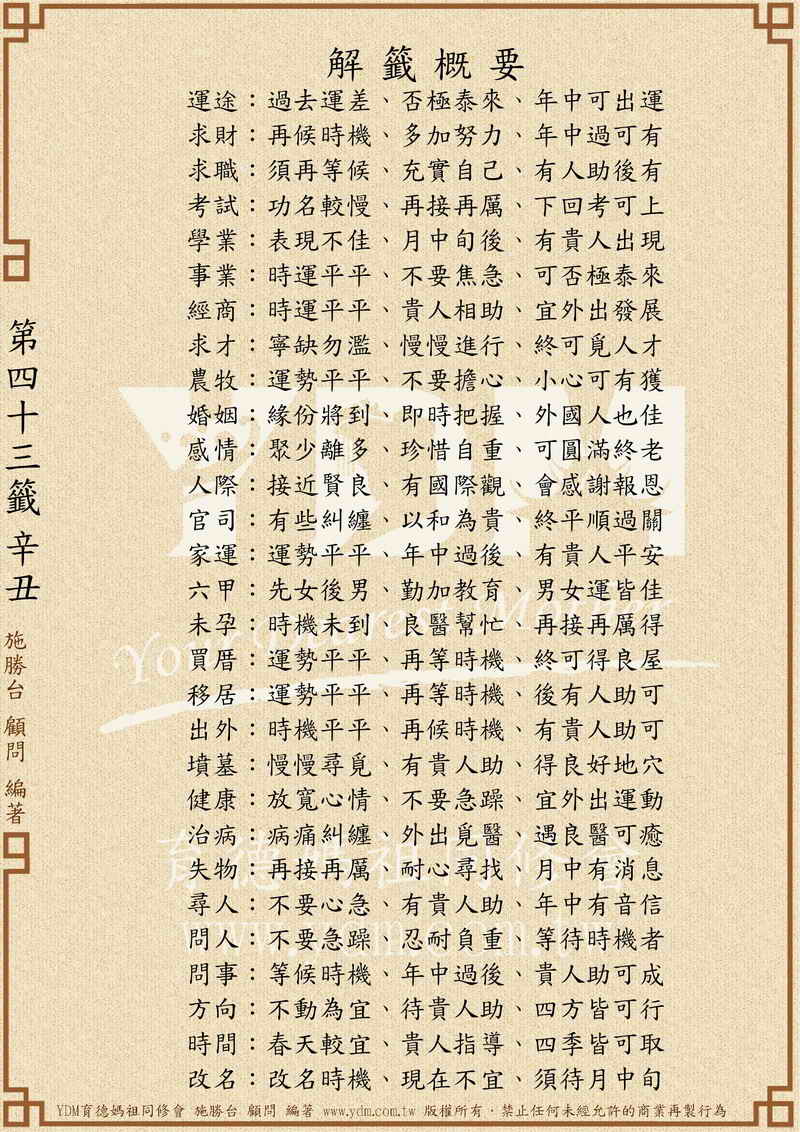 解籤概要
運途：過去運差、否極泰來、年中可出運
求財：再候時機、多加努力、年中過可有
求職：須再等候、充實自己、有人助後有
考試：功名較慢、再接再厲、下回考可上
學業：表現不佳、月中旬後、有貴人出現
事業：時運平平、不要焦急、可否極泰來
經商：時運平平、貴人相助、宜外出發展
求才：寧缺勿濫、慢慢進行、終可覓人才
農牧：運勢平平、不要擔心、小心可有獲
婚姻：緣份將到、即時把握、外國人也佳
感情：聚少離多、珍惜自重、可圓滿終老
人際：接近賢良、有國際觀、會感謝報恩
官司：有些糾纏、以和為貴、終平順過關
家運：運勢平平、年中過後、有貴人平安
六甲：先女後男、勤加教育、男女運皆佳
未孕：時機未到、良醫幫忙、再接再厲得
買厝：運勢平平、再等時機、終可得良屋
移居：運勢平平、再等時機、後有人助可
出外：時機平平、再候時機、有貴人助可
墳墓：慢慢尋覓、有貴人助、得良好地穴
健康：放寬心情、不要急躁、宜外出運動
治病：病痛糾纏、外出覓醫、遇良醫可癒
失物：再接再厲、耐心尋找、月中有消息
尋人：不要心急、有貴人助、年中有音信
問人：不要急躁、忍耐負重、等待時機者
問事：等候時機、年中過後、貴人助可成
方向：不動為宜、待貴人助、四方皆可行
時間：春天較宜、貴人指導、四季皆可取
改名：改名時機、現在不宜、須待月中旬
第四十三籤 辛丑
施勝台 顧問 編著
YDM
Your Dearest Mother
育德媽祖同修會
www.ydm.com.tw
YDM育德媽祖同修會 施勝台 顧問 編著 www.ydm.com.tw 版權所有．禁止任何未經允許的商業再製行為